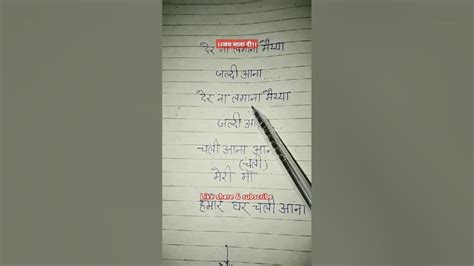 ||जय माता दी||
देर ना लगाना मैय्या
जल्दी आना.....
देर ना लगाना मैय्या
जल्दी आ
चली आना आन
(चली)
मेरी माँ
Like share & subscribe
हमार घर चली आना